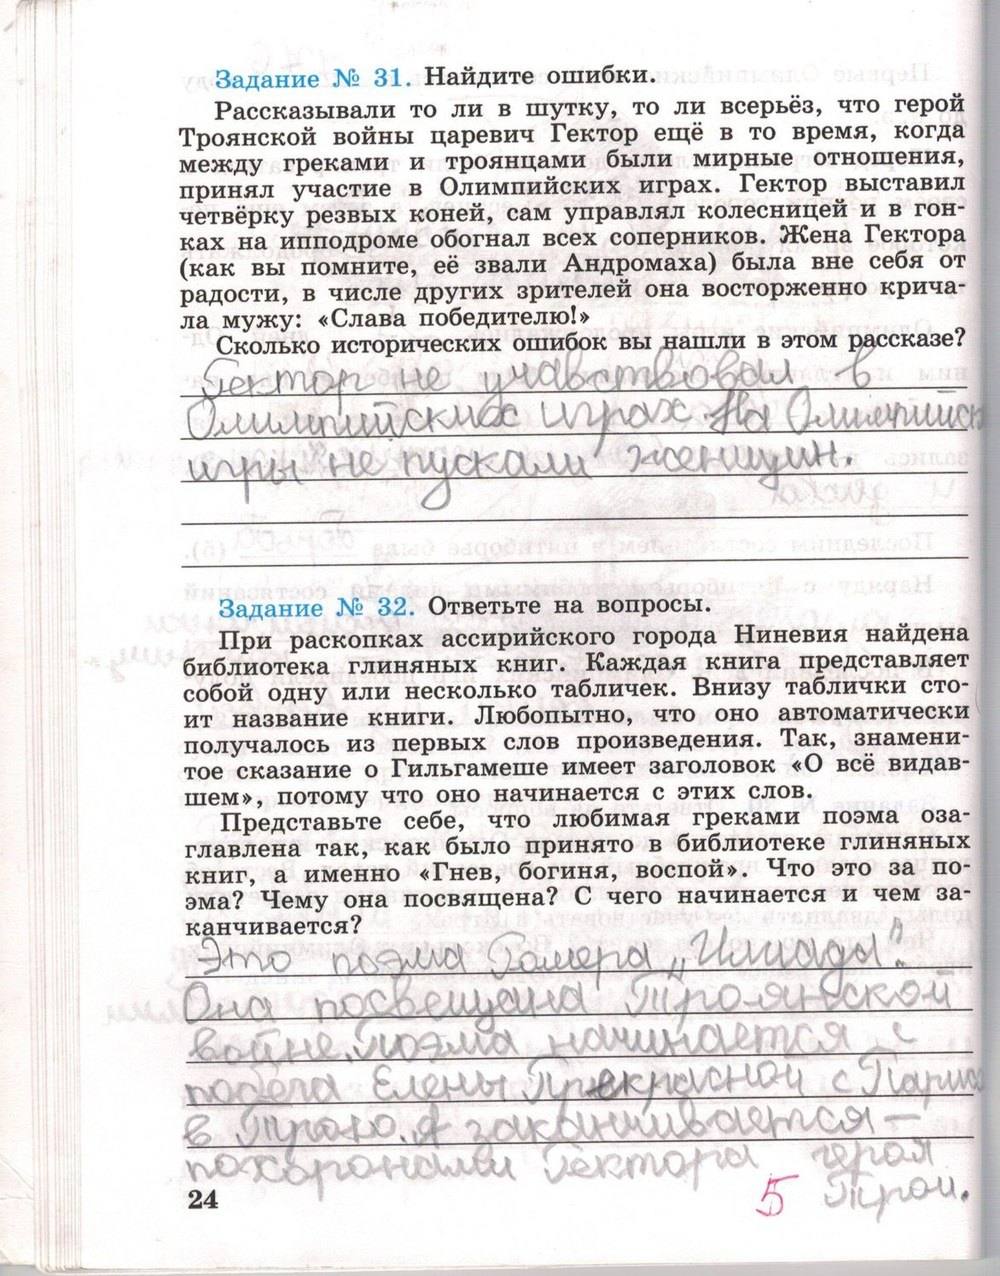 Задание № 31. Найдите ошибки.
Рассказывали то ли в шутку, то ли всерьёз, что герой
Троянской войны царевич Гектор ещё в то время, когда
между греками и троянцами были мирные отношения,
принял участие в Олимпийских играх. Гектор выставил
четвёрку резвых коней, сам управлял колесницей и в гон-
ках на ипподроме обогнал всех соперников. Жена Гектора
(как вы помните, её звали Андромаха) была вне себя от
радости, в числе других зрителей она восторженно крича-
ла мужу: «Слава победителю!»
Сколько исторических ошибок вы нашли в этом рассказе?
Гектор не учавствовал в
Олимпийских играх. На Олимпийск
игры не пускали женщин.
Задание № 32. Ответьте на вопросы.
При раскопках ассирийского города Ниневия найдена
библиотека глиняных книг. Каждая книга представляет
собой одну или несколько табличек. Внизу таблички сто-
ит название книги. Любопытно, что оно автоматически
получалось из первых слов произведения. Так, знамени-
тое сказание о Гильгамеше имеет заголовок «О всё видав-
шем», потому что оно начинается с этих слов.
Представьте себе, что любимая греками поэма оза-
главлена так, как было принято в библиотеке глиняных
книг, а именно «Гнев, богиня, воспой». Что это за по-
эма? Чему она посвящена? С чего начинается и чем за-
канчивается?
Это поэма Гомера „Илиада".
Она посвещана Троянской
войне. Поэма начинается с
побега Елены Прекрасной с Парис
в Трою. А заканчивается —
похоронами Гектора героя
Трои.
24
5